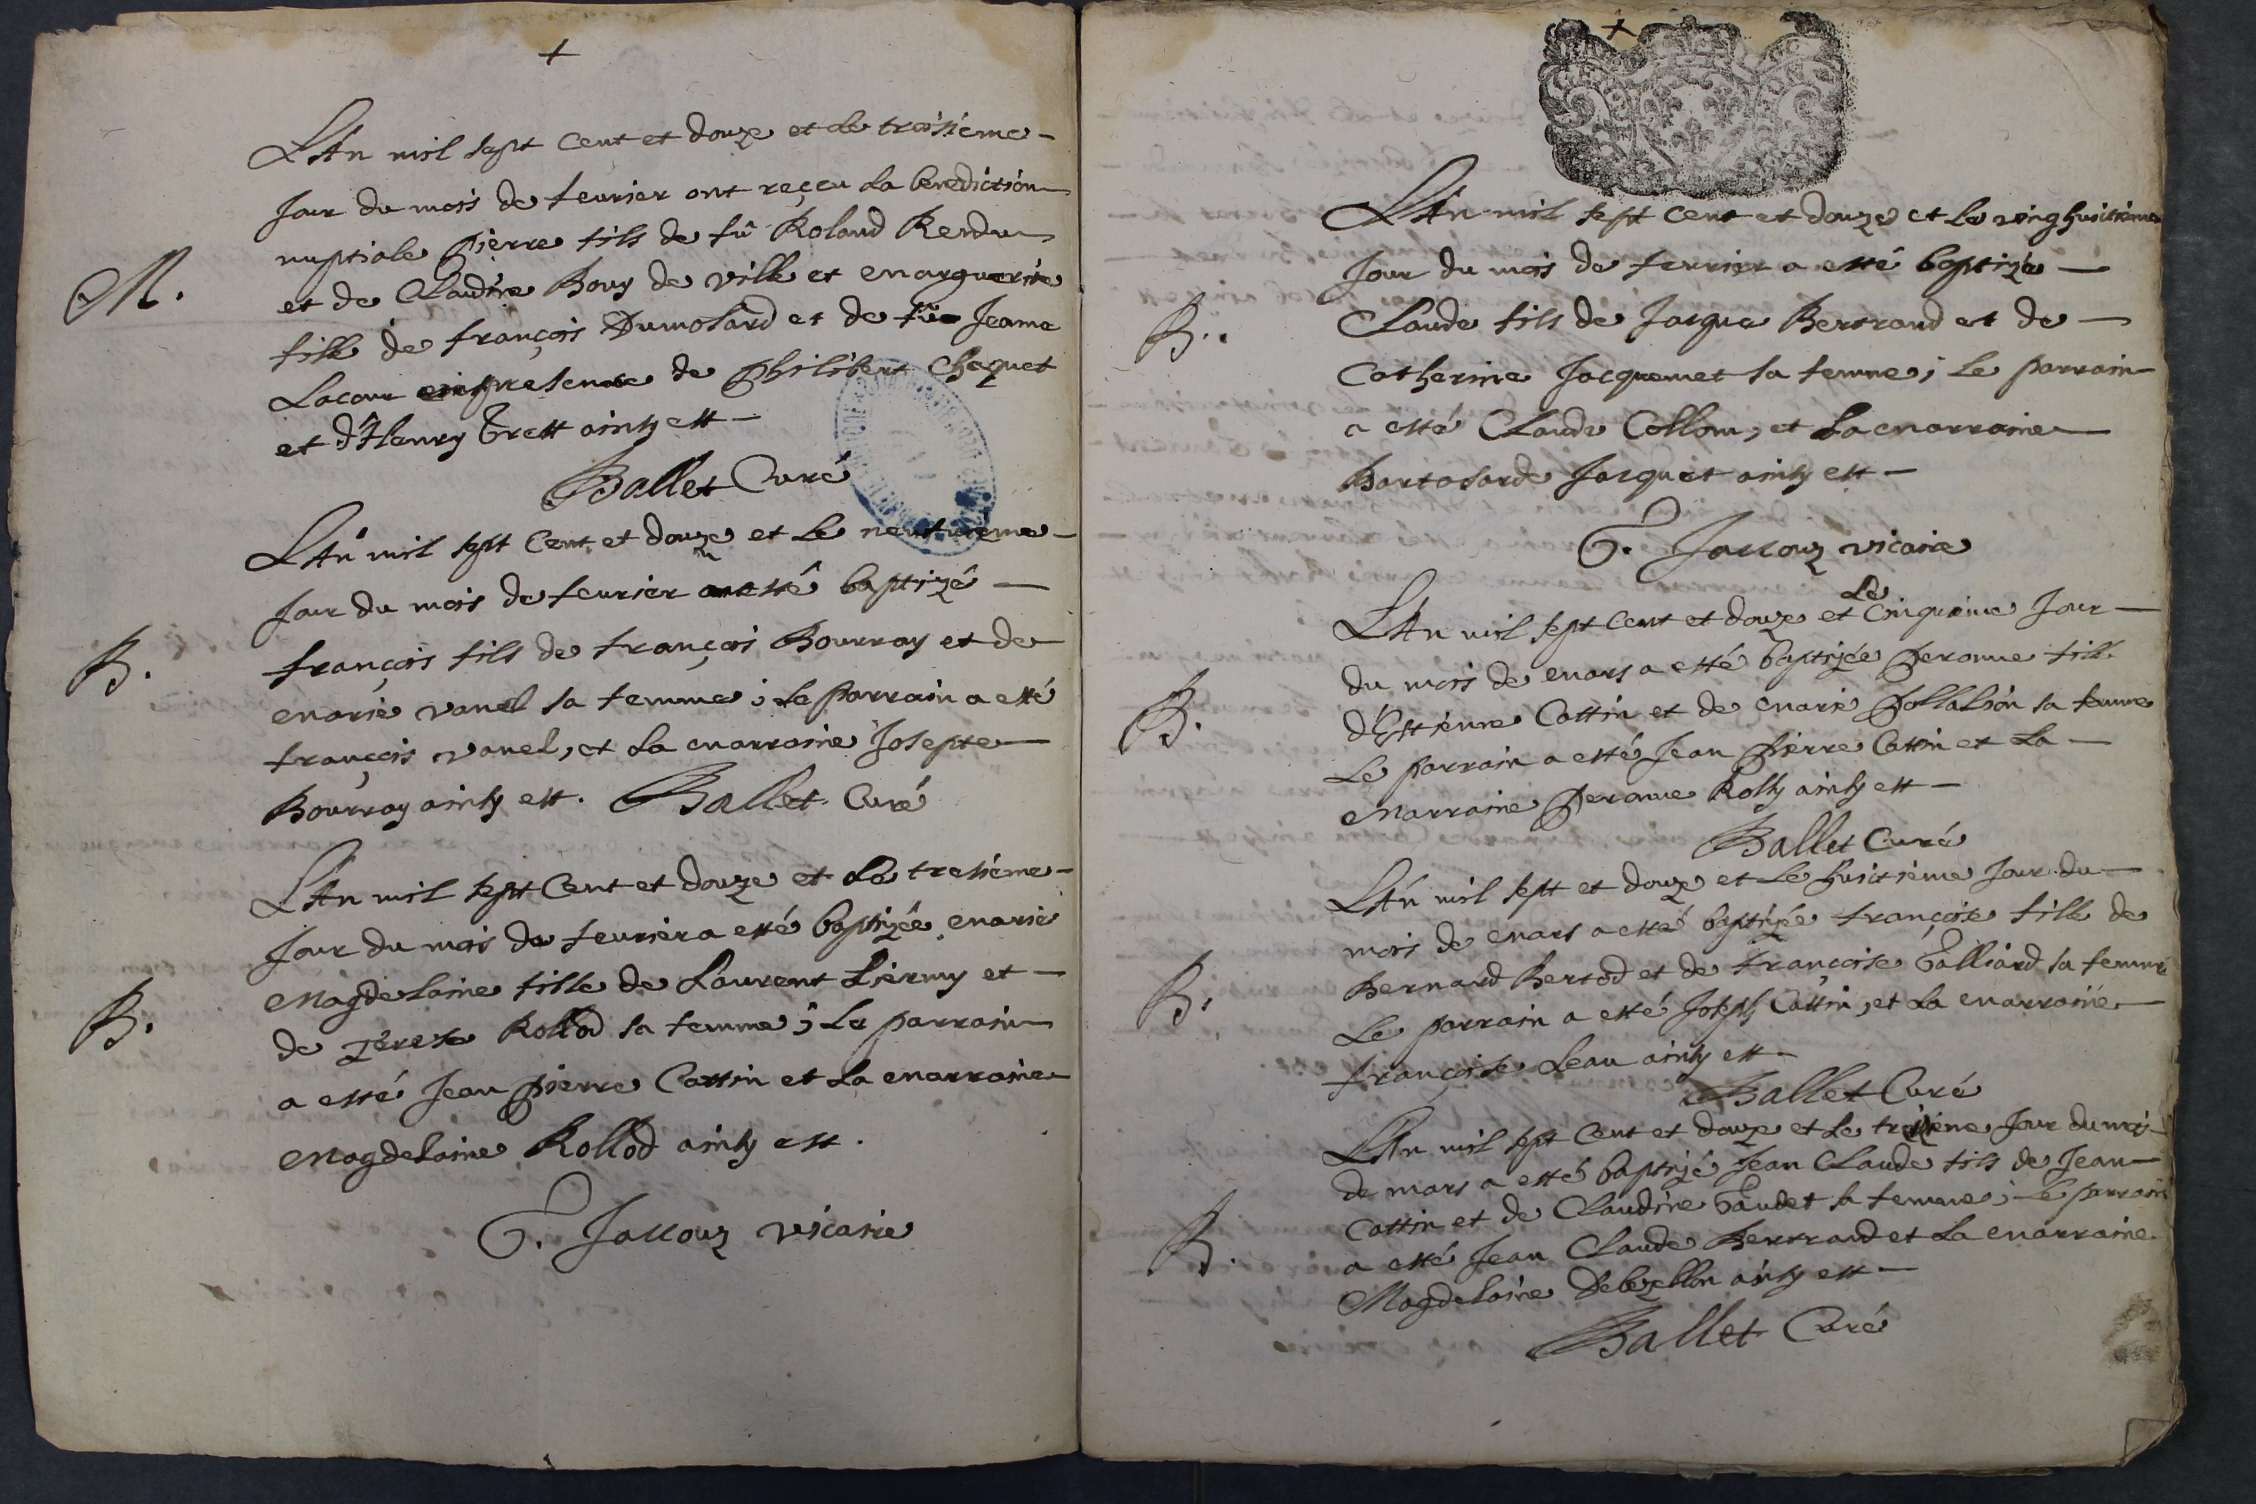 +
LAn mil sept cent et douze et le troisieme
Jour du mois de feurier ont reçeu la benediction
nuptiale pierre fils de fû Roland Rendu
M.
et de Claudine Bouy de ville et marguerite
fille de françois Dumolard et de fûe Jeanne
Lacour enpresence de philibert Chaquet
et d'Henry Trett ainsy est
Ballet Curé
LAn mil sept Cent et douze et le neufuieme
Jour du mois de feurier a esté baptizé
B.
françois fils de françois Bourray et de
marie vanel sa femme ; Le parrain a esté
françois vanel, et la marraine Josepte
Bourray ainsy est. Ballet Curé
LAn mil sept Cent et douze et le tresiéme
Jour du mois de feurier a esté baptizée marie
Magdelaine fille de Laurent Liermy et
B.
de terese Rollod sa femme ; Le parrain
a esté Jean pierre Cattin et La marraine
Magdelaine Rollod ainsy est.
G. Jallouz vicaire
+
LAn mil sept cent et douze et Le ving huictieme
Jour du mois de ferrier a esté baptizé
B.
Claude fils de Jacque Bertrand et de
Catherine Jacquemet sa femme ; Le parrain
a esté Claude Collom, et La marraine
Bartolarde Jacquet ainsy est
G. Jallouz vicaire
LAn mil sept cent et douze et Le Cinquieme Jour
du mois de mars a esté baptizée peronne fille
B.
d'Estienne Cattin et de marie pollalion sa femme
Le parrain a esté Jean pierre Cattin et La
marraine peronne Rolly ainsy est
Ballet Curé
LAn mil sept et douze et Le huictieme Jour du
mois de mars a esté baptizée françoise fille de
B.
Bernard Bertod et de françoise Talliard sa femme
Le parrain a esté Joseph Cattin, et La marraine
françoise Leau ainsy est
Ballet Curé
LAn mil sept Cent et douze et Le Jour du moy
de mars a esté baptizé Jean Claude fils de Jean
B.
Cattin et de Claudine Gaudet sa femme ; Le parrain
a esté Jean Claude Bertrand et La marraine
Magdelaine Debezellon ainsy est
Ballet Curé